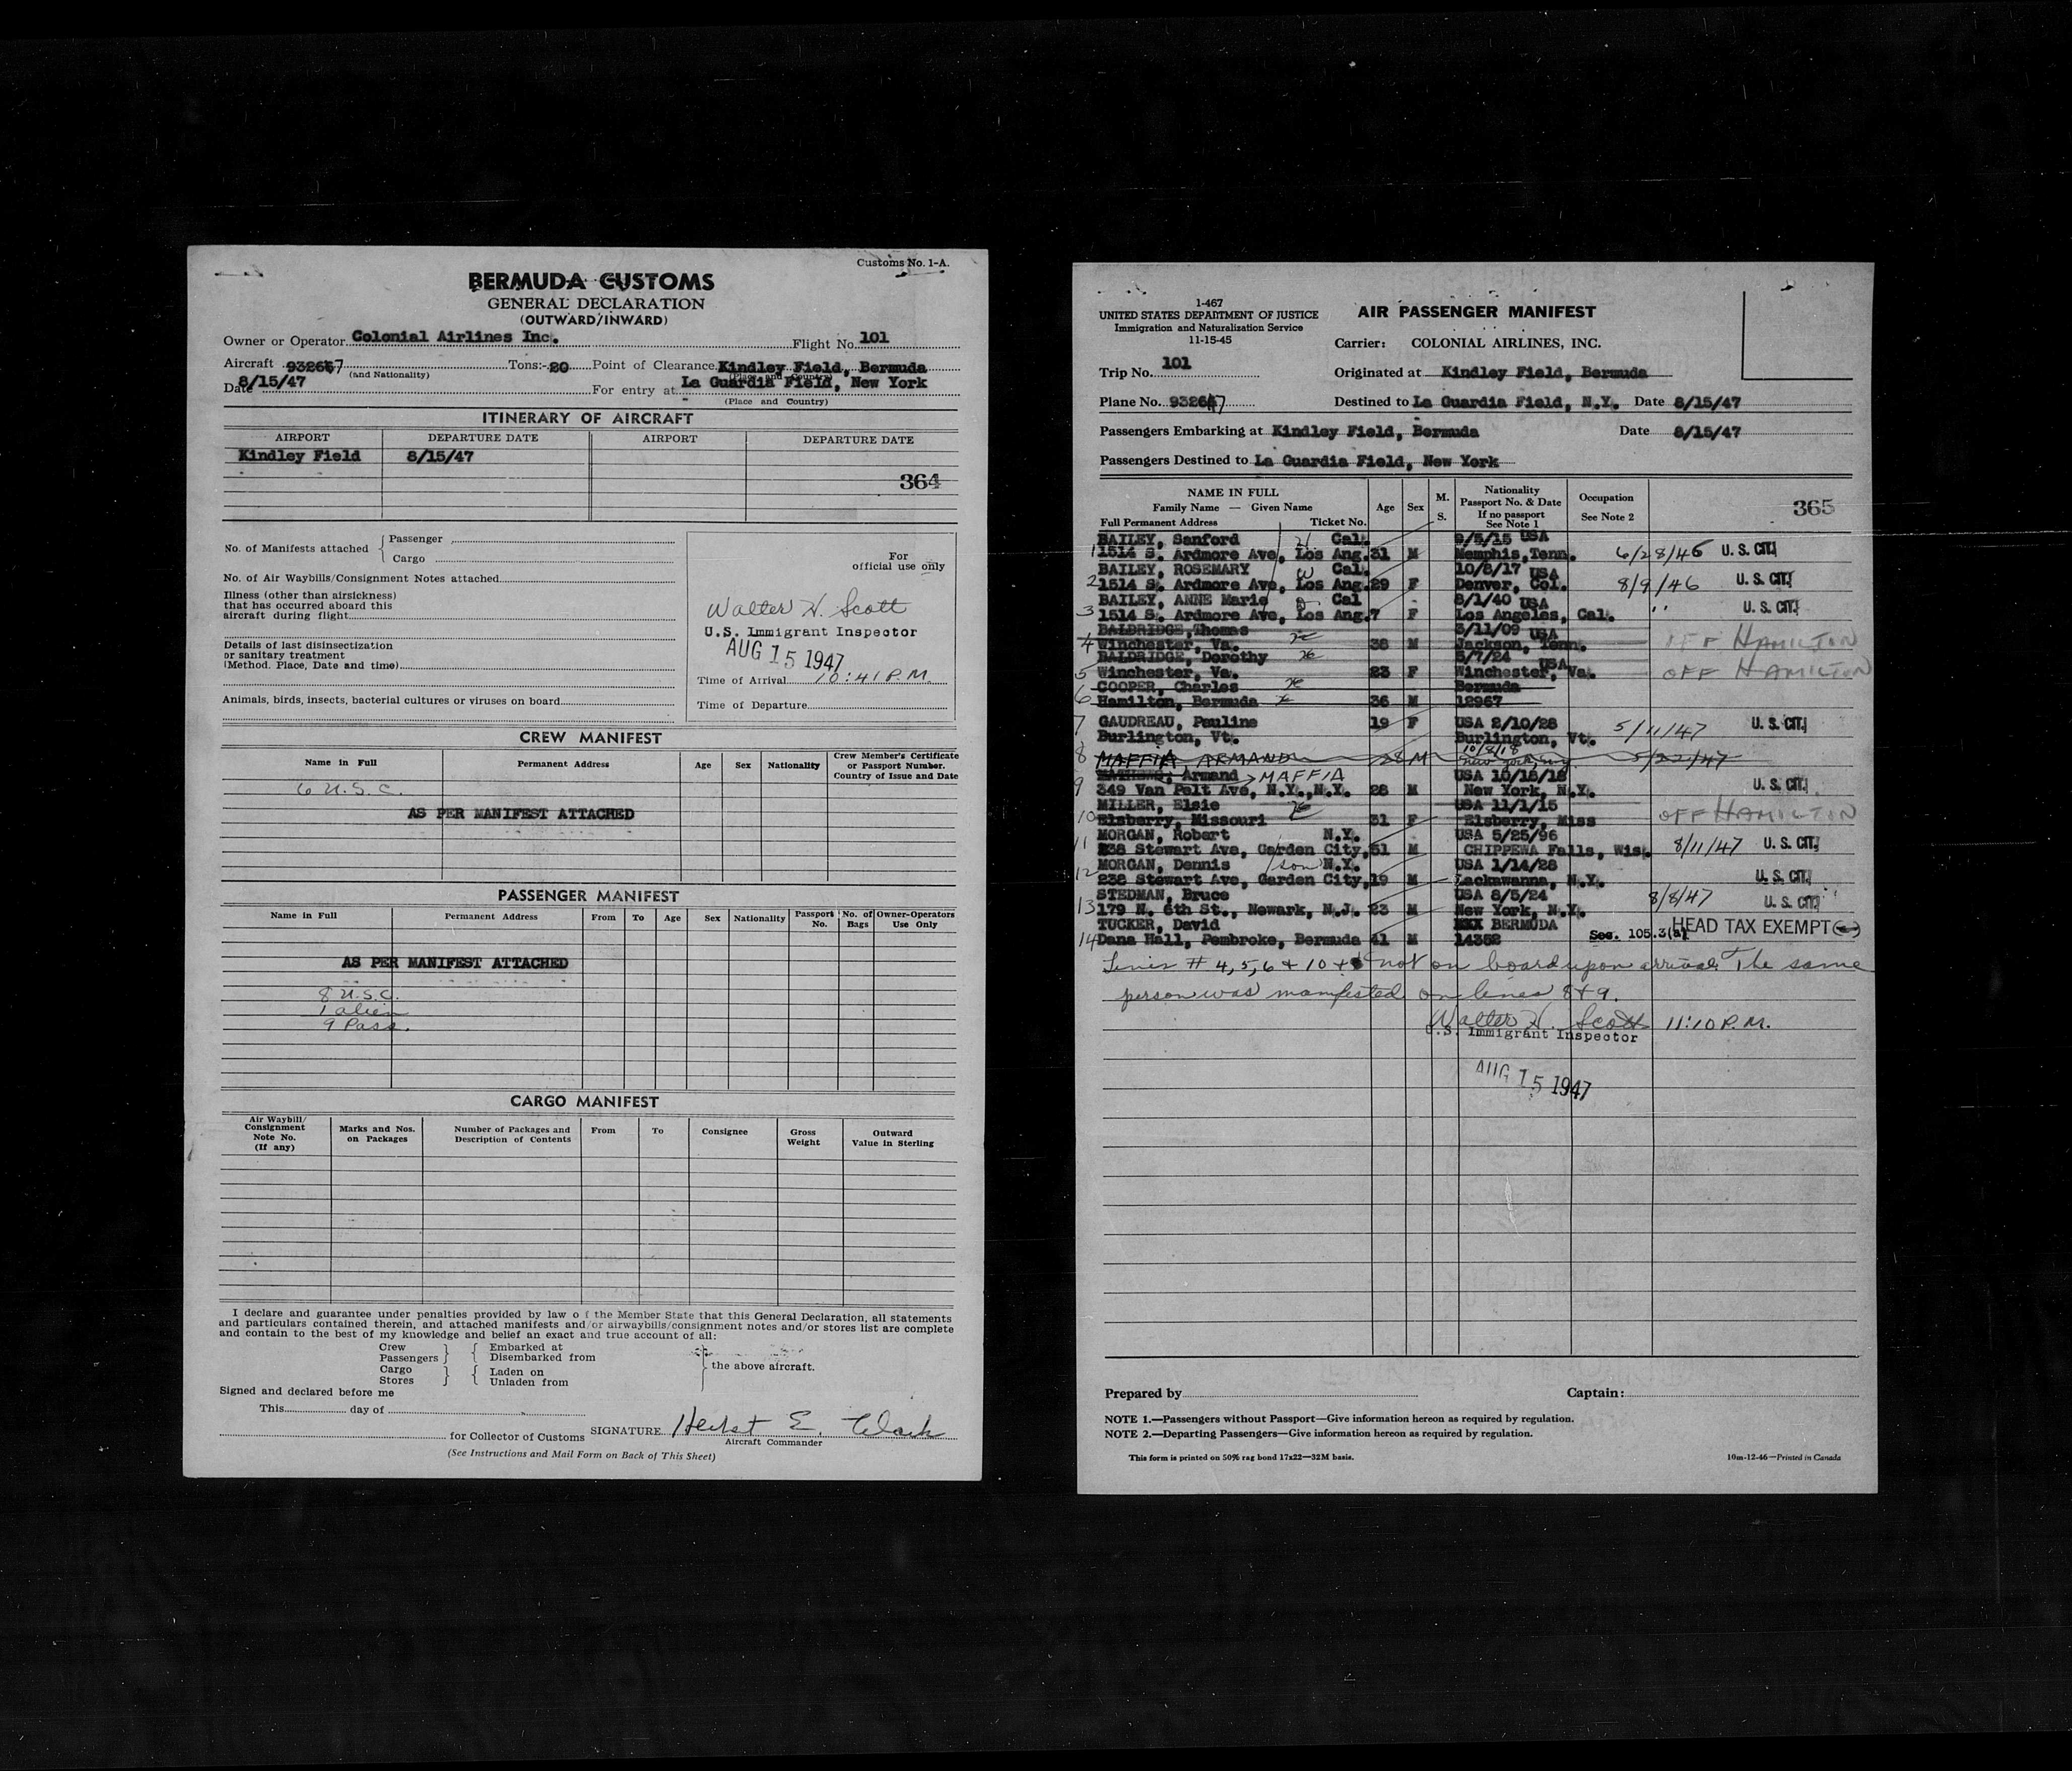 Customs No. 1-A.
BERMUDA CUSTOMS
GENERAL DECLARATION
(OUTWARD/INWARD)
Owner or Operator Colonial Airlines Inc. Flight No. 101
Aircraft 932647 Tons: 20 Point of Clearance Kindley Field, Bermuda
(and Nationality) (Place and Country)
Date 8/15/47 For entry at La Guardia Field, New York
(Place and Country)
ITINERARY OF AIRCRAFT
AIRPORT DEPARTURE DATE AIRPORT DEPARTURE DATE
Kindley Field 8/15/47
364
No. of Manifests attached Passenger
Cargo
For official use only
No. of Air Waybills/Consignment Notes attached
Illness (other than airsickness)
that has occurred aboard this
aircraft during flight
Walter H. Scott
U.S. Immigrant Inspector
AUG 15 1947
Details of last disinsectization
or sanitary treatment
(Method. Place, Date and time)
Time of Arrival 10:41 P.M.
Animals, birds, insects, bacterial cultures or viruses on board
Time of Departure
CREW MANIFEST
Name in Full Permanent Address Age Sex Nationality Crew Member's Certificate or Passport Number. Country of Issue and Date
6 U.S.C.
AS PER MANIFEST ATTACHED
PASSENGER MANIFEST
Name in Full Permanent Address From To Age Sex Nationality Passport No. No. of Bags Owner-Operators Use Only
AS PER MANIFEST ATTACHED
8 U.S.C.
1 alien
9 Pass.
CARGO MANIFEST
Air Waybill/Consignment Note No. (If any) Marks and Nos. on Packages Number of Packages and Description of Contents From To Consignee Gross Weight Outward Value in Sterling
I declare and guarantee under penalties provided by law of the Member State that this General Declaration, all statements
and particulars contained therein, and attached manifests and/or airwaybills/consignment notes and/or stores list are complete
and contain to the best of my knowledge and belief an exact and true account of all:
Crew Embarked at
Passengers Disembarked from
Cargo Laden on the above aircraft.
Stores Unladen from
Signed and declared before me
This day of
for Collector of Customs SIGNATURE E. Clark
Aircraft Commander
(See Instructions and Mail Form on Back of This Sheet)
1-467
UNITED STATES DEPARTMENT OF JUSTICE
Immigration and Naturalization Service
11-15-45
AIR PASSENGER MANIFEST
Carrier: COLONIAL AIRLINES, INC.
Trip No. 101 Originated at Kindley Field, Bermuda
Plane No. 932647 Destined to La Guardia Field, N.Y. Date 8/15/47
Passengers Embarking at Kindley Field, Bermuda Date 8/15/47
Passengers Destined to La Guardia Field, New York
NAME IN FULL
Family Name — Given Name
Full Permanent Address Ticket No. Age Sex M. S. Nationality Passport No. & Date If no passport See Note 1 Occupation See Note 2
365
BAILEY, Sanford Cal. 9/5/15 USA
1 1514 S. Ardmore Ave, Los Ang. 31 M Memphis, Tenn. 6/28/46 U. S. CIT.
BAILEY, ROSEMARY Cal. 10/8/17 USA
2 1514 S. Ardmore Ave, Los Ang. 29 F Denver, Col. 8/9/46 U. S. CIT.
BAILEY, ANNE Marie Cal 8/1/40 USA
3 1514 S. Ardmore Ave, Los Ang. 7 F Los Angeles, Cal. " U. S. CIT.
BALDRIDGE, Thomas 3/11/09 USA
4 Winchester, Va. 38 M Jackson, Tenn. OFF HAMILTON
BALDRIDGE, Dorothy 5/7/24 USA
5 Winchester, Va. 23 F Winchester, Va. OFF HAMILTON
COOPER, Charles Bermuda
6 Hamilton, Bermuda 36 M 12967
7 GAUDREAU, Pauline 19 F USA 2/10/28 5/11/47 U. S. CIT.
Burlington, Vt. Burlington, Vt.
8 MAFFIA ARMAND 28 M 10/8/18 New York, 5/22/47
Armand MAFFIA USA 10/18/18
9 349 Van Pelt Ave, N.Y., N.Y. 28 M New York, N.Y. U. S. CIT.
MILLER, Elsie USA 11/1/15
10 Elsberry, Missouri 31 F Elsberry, Miss OFF HAMILTON
MORGAN, Robert N.Y. USA 5/25/96
11 238 Stewart Ave, Garden City, 51 M CHIPPEWA Falls, Wis. 8/11/47 U. S. CIT.
MORGAN, Dennis (son) N.Y. USA 1/14/28
12 238 Stewart Ave, Garden City, 19 M Lackawanna, N.Y. U. S. CIT.
STEDMAN, Bruce USA 8/5/24
13 179 N. 6th St., Newark, N.J. 23 M New York, N.Y. 8/8/47 U. S. CIT.
TUCKER, David XXX BERMUDA
14 Dana Hall, Pembroke, Bermuda 41 M 14352 Sec. 105.3(a) HEAD TAX EXEMPT
Lines # 4, 5, 6 & 10 not on board upon arrival. The same
person was manifested on lines 8 & 9.
Walter H. Scott 11:10 P.M.
U.S. Immigrant Inspector
AUG 15 1947
Prepared by Captain:
NOTE 1.—Passengers without Passport—Give information hereon as required by regulation.
NOTE 2.—Departing Passengers—Give information hereon as required by regulation.
This form is printed on 50% rag bond 17x22—32M basis. 10m-12-46—Printed in Canada